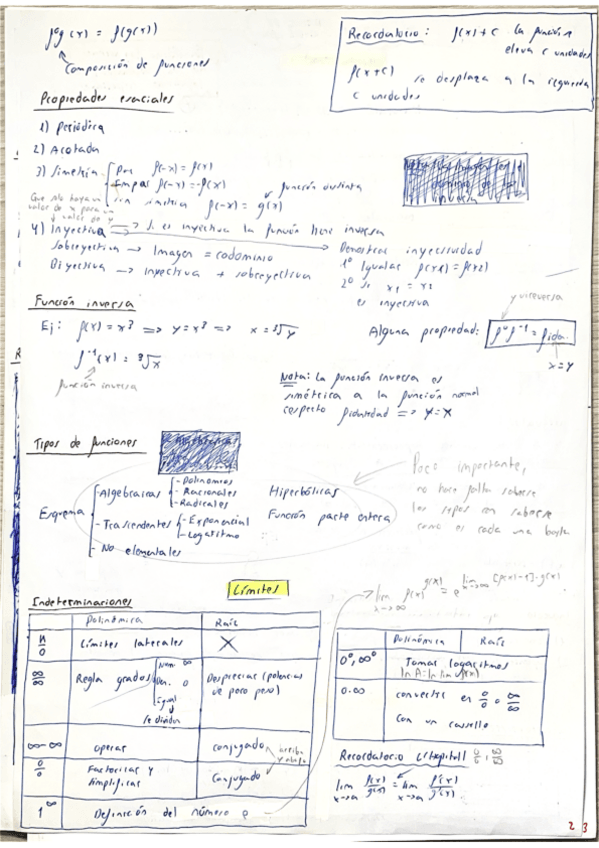 fog (x) = f(g(x))
Composición de funciones
Recordatorio: f(x)+c la función se
eleva c unidades
f(x+c) se desplaza a la izquierda
c unidades
Propiedades esenciales
1) Periódica
2) Acotada
3) Simetría Par f(-x) = f(x)
Impar f(-x) = -f(x)
sin simetría f(-x) = g(x)
función distinta
Que solo haya un
valor de x para un
valor de y
4) Inyectiva => Si es inyectiva la función tiene inversa
Sobreyectiva → Imagen = codominio
Biyectiva → inyectiva + sobreyectiva
Demostrar inyectividad
1º Igualas f(x1) = f(x2)
2º Si x1 = x2
es inyectiva
Función inversa
y viceversa
Ej: f(x) = x³ => y = x³ => x = ³√y
Alguna propiedad: f o f⁻¹ = fida.
x = y
f⁻¹(x) = ³√x
función inversa
Nota: La función inversa es
simétrica a la función normal
respecto fidentidad => y = x
Tipos de funciones
Esquema
- Algebraicas
- Polinomios
- Racionales
- Radicales
- Trascendentes
- Exponencial
- Logaritmo
- No elementales
Hiperbólicas
Función parte entera
Poco importante,
no hace falta saberse
los tipos con saberse
como es cada una basta
Límites
lim f(x)^g(x) = e^lim [f(x)-1]·g(x)
x→∞ x→∞
Indeterminaciones
Polinómica Raíz
n/0 Límites laterales X
∞/∞ Regla grados Num. ∞ Den. 0 Igual se dividen Desprecias (potencias
de poco peso)
∞-∞ operar conjugado
arriba
y abajo
0/0 Factorizas y
simplificas Conjugado
1^∞ Definición del número e
Polinómica Raíz
0⁰, ∞⁰ Tomar logaritmos
0·∞ convertir en 0/0 o ∞/∞
con un castillo
Recordatorio L'Hopital 0/0 ; ∞/∞
lim f(x)/g(x) = lim f'(x)/g'(x)
x→a x→a
2 3